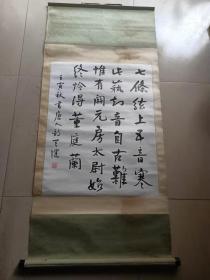 七條絃上五音寒
此藝知音自古難
惟有開元房太尉始
終怜得董庭蘭
壬寅秋書唐人詩